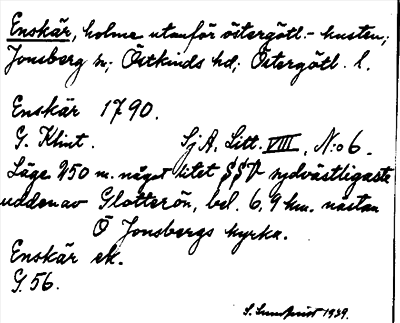 Enskär, holme utanför östergötl.- kusten;
Jonsberg n; Östkinds hd; Östergötl. l.
Enskär 1790.
G. Klint. SjA. Litt. VIII, N:o 6.
Läge 250 m. något litet SSV sydvästligaste
udden av Glotterön, bel. 6,9 km. nästan
Ö Jonsbergs kyrka.
Enskär ek.
G. 56.
S. Lundqvist 1939.